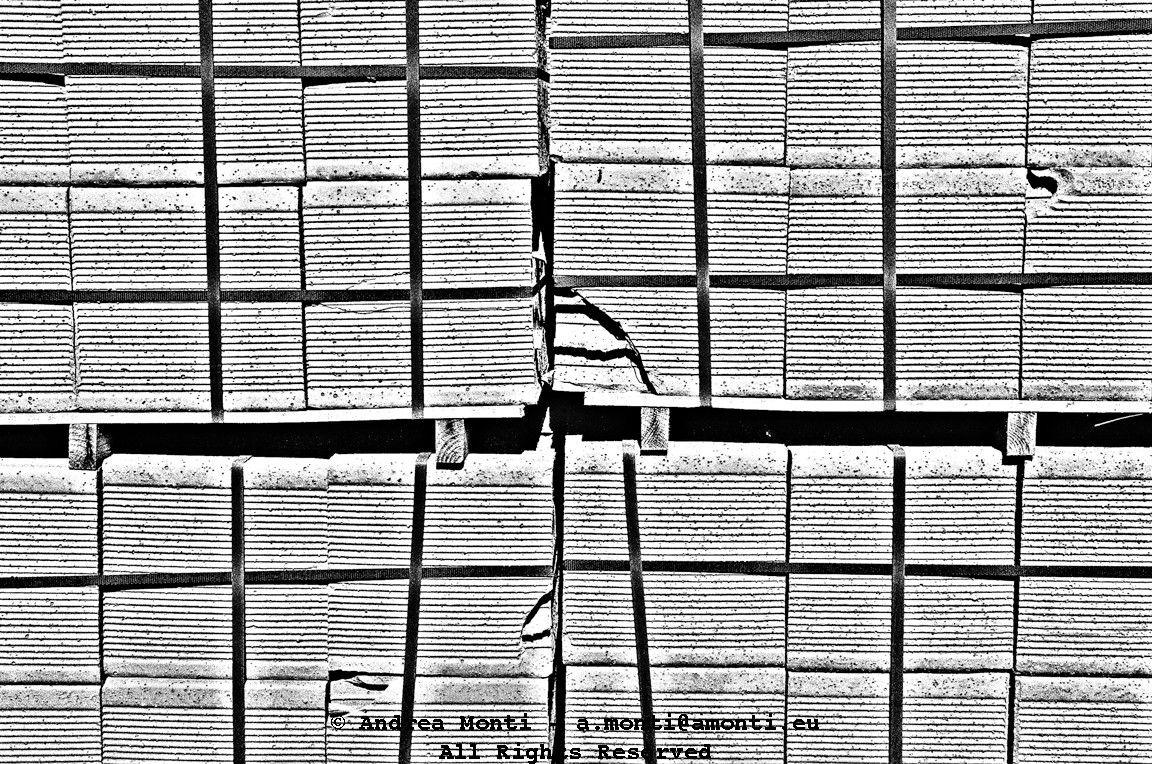 © Andrea Monti - a.monti@amonti.eu
All Rights Reserved